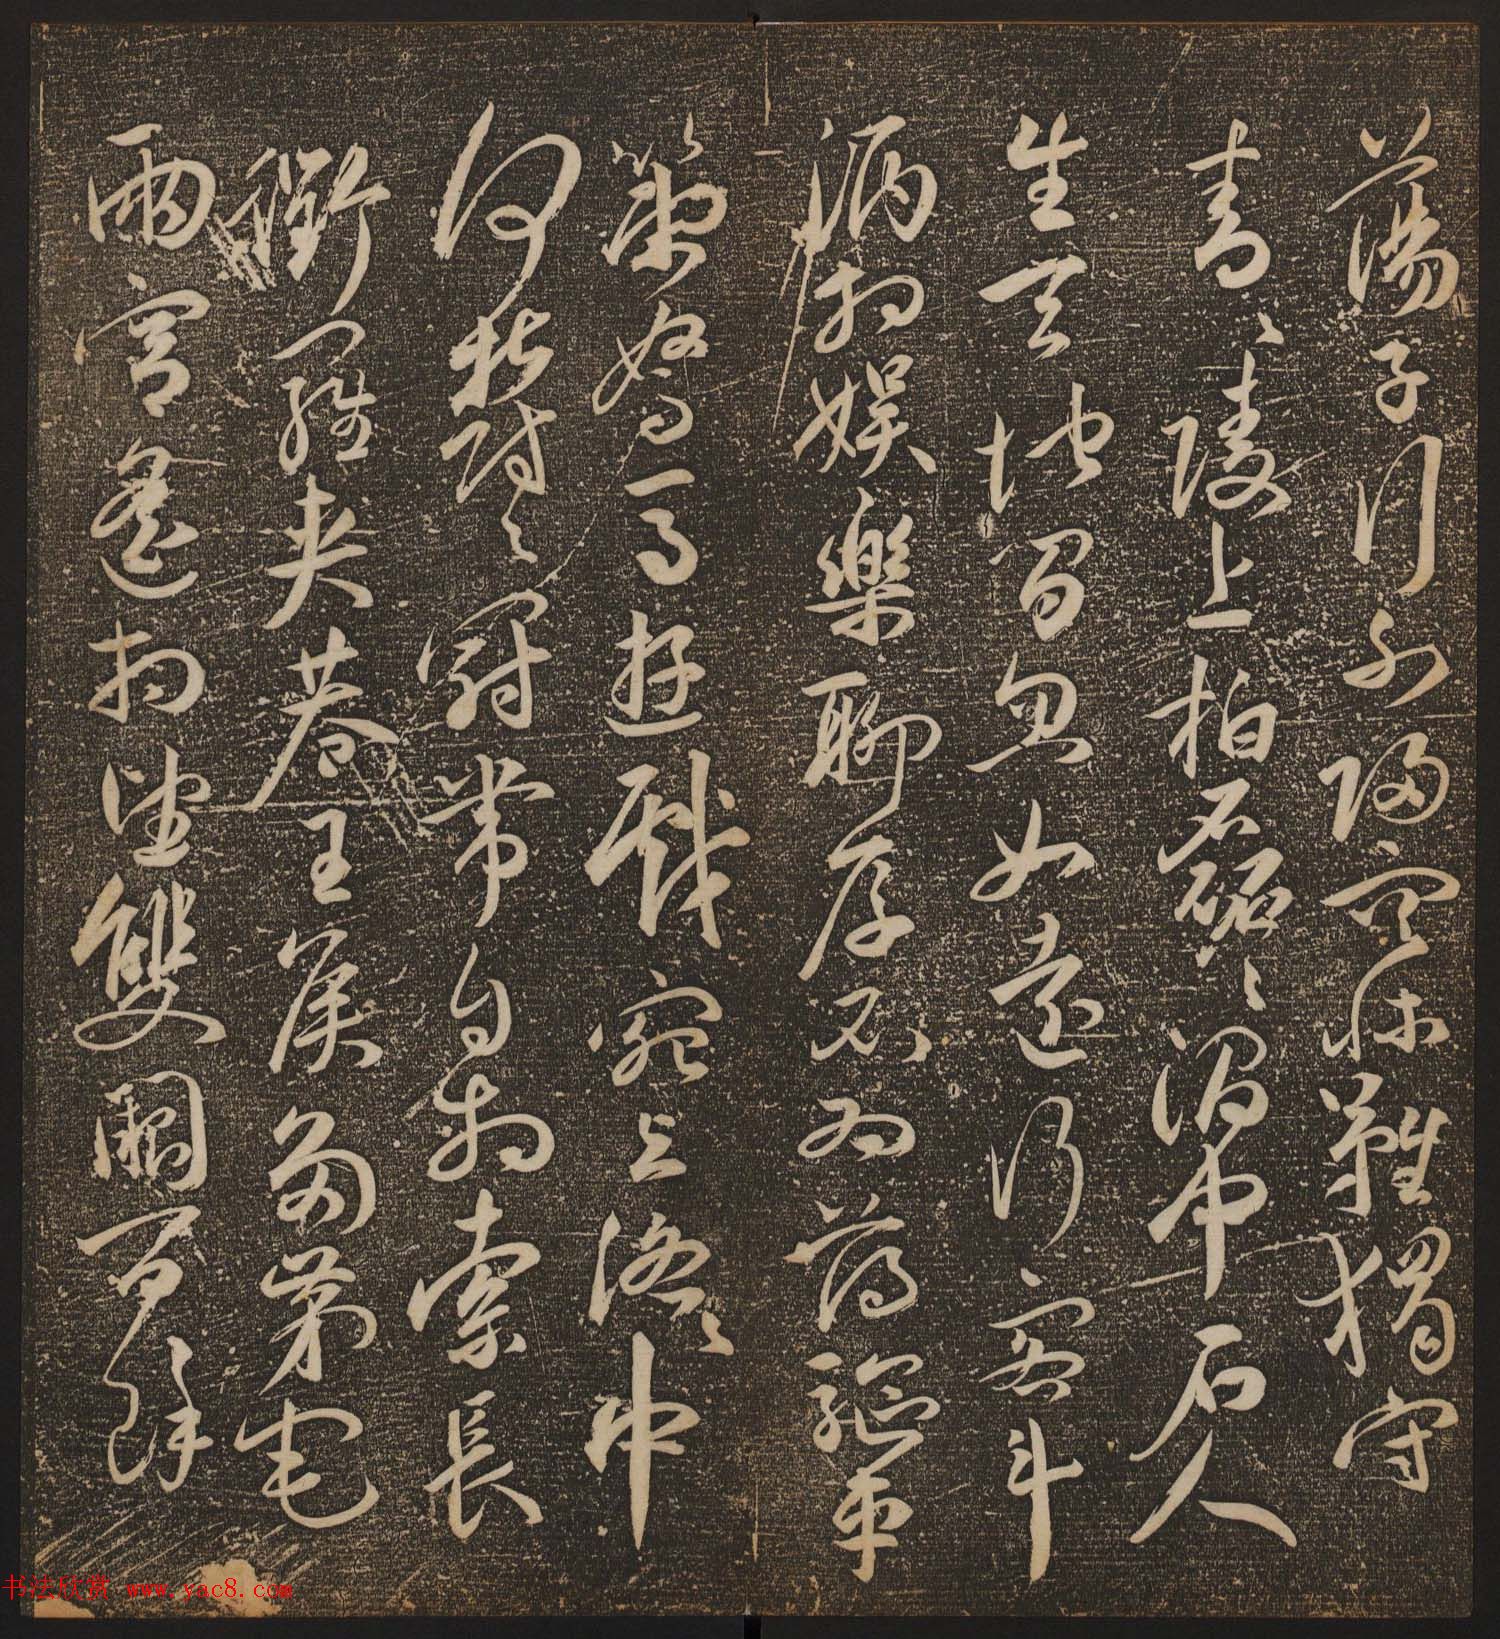 蕩子行不歸空牀難獨守
青〻陵上柏磊〻澗中石人
生天地間忽如遠行客斗
酒相娛樂聊厚不為薄驅車
策駑馬遊戲宛與洛〻中
何鬱〻冠帶自相索長
衢羅夾巷王侯多第宅
兩宮遙相望雙闕百餘
书法欣赏 www.yac8.com